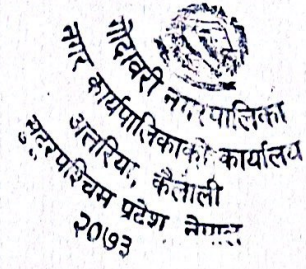 गोदावरी नगरपालिका
नगर कार्यपालिकाको कार्यालय
अत्तरिया, कैलाली
सुदूरपश्चिम प्रदेश नेपाल
२०७३